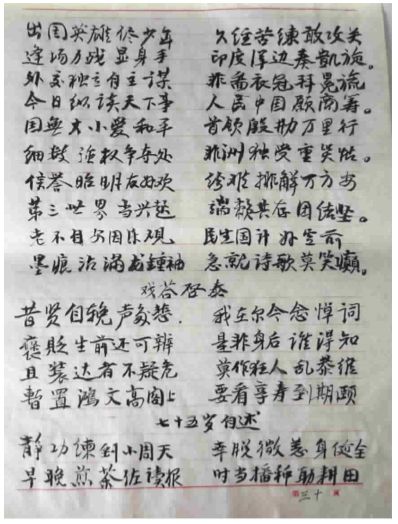 出国英雄依少年 久经苦练敢攻关
逢场力战显身手 印度洋边奏凯旋。
外交独立自主谋 非裔衣冠拜冕旒
今日纵谈天下事 人民中国愿商筹。
国无大小爱和平 首领殷勤万里行
细数诸权争夺处 非洲独受重灾
信誉昭明友好欢 纷难排解万方安
第三世界当兴起 端赖共存团结坚。
老不自安因乐观 民生国计好空前
墨痕沾满龙钟袖 急就诗歌莫笑癫。
戏答启泰
昔贤自挽声多悲. 我在尔今念悼词
褒贬生前还可辨 是非身后谁得知
且装达者不疑危 莫作狂人乱恭维
暂置鸿文高阁上 要看享寿到期颐
七十五岁自述
静功练到小周天 幸脱微恙身健全
早晚煎茶佐读报 时当播种助耕田
第三十页